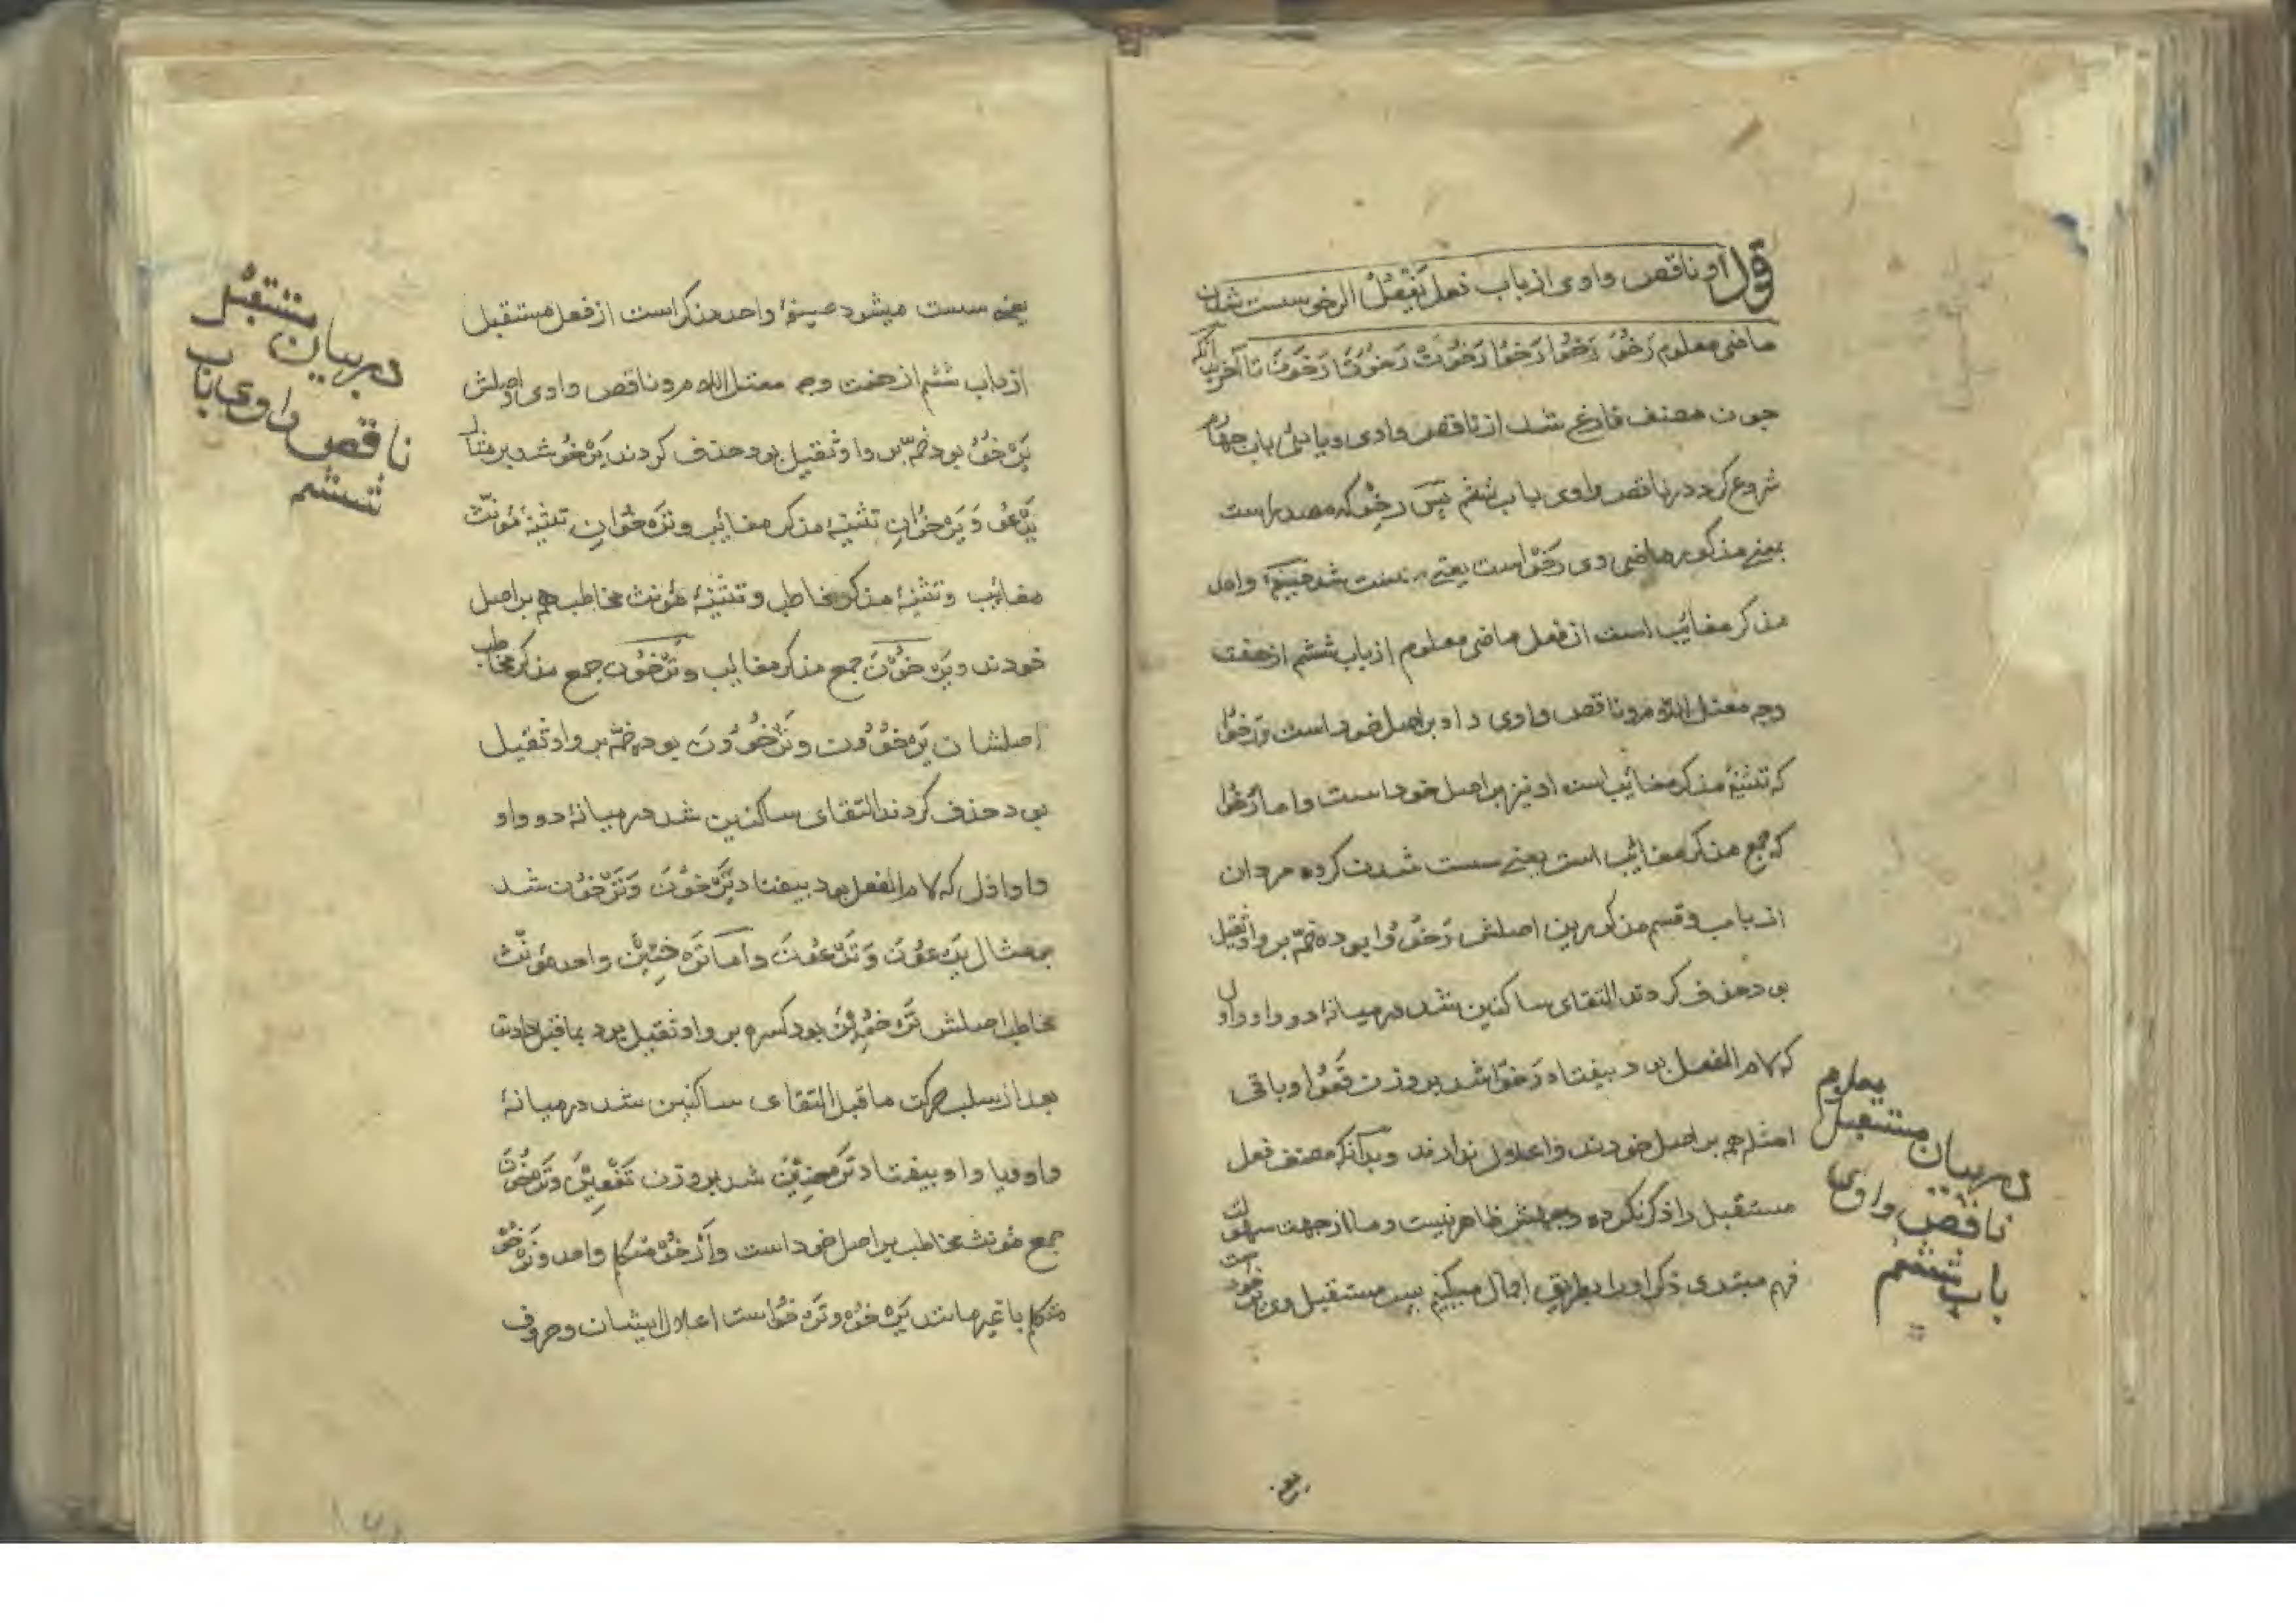 قول او ناقص واوی از باب فعل یَفْعُلُ الرخو سست شدن
ماضی معلوم رَخُوَ رَخُوَا رَخُوْا رَخُوَتْ رَخُوَتَا رَخُوْنَ تا آخر بدانکه
چون مصنف فارغ شد از ناقص واوی و یائی باب چهارم
شروع کرد در ناقص واوی باب ششم پس رخو که مصدر است
بمعنی مذکور ماضی وی رَخُوَ است یعنی سست شد صیغهٔ واحد
مذکر مغائب است از فعل ماضی معلوم از باب ششم از هفت
وجه معتل اللام مرو ناقص واوی و او بر اصل خود است و رَخُوَا
که تثنیهٔ مذکر مغائب است او نیز بر اصل خود است و اما رَخُوْا
که جمع مذکر مغائب است یعنی سست شدن کرده مردان
از باب و قسم مذکورین اصلش رَخُوُوْا بوده ضمّه بر واو ثقیل
بود حذف کردند التقای ساکنین شد در میانهٔ دو واو واو اول
که لام الفعل بود بیفتاد رَخُوْا شد بر وزن فَعُوْا و باقی
امثله هم بر اصل خودند و اعلال ندارند و بدانکه مصنف فعل
مستقبل را ذکر نکرده وجهش ظاهر نیست و ما از جهت سهولت
فهم مبتدی ذکر او را بطریق اجمال میکنیم پس مستقبل وی یَرْخُوْ است
معلوم
در بیان مستقبل
ناقص واوی
باب ششم
یعنی سست میشود صیغهٔ واحد مذکر است از فعل مستقبل
از باب ششم از هفت وجه معتل اللام مرو ناقص واوی اصلش
یَرْخُوُ بود ضمّه بر واو ثقیل بود حذف کردند یَرْخُوْ شد بر مثال
یَدْعُوْ وَ یَرْخُوَانِ تثنیهٔ مذکر مغائب و تَرْخُوَانِ تثنیهٔ مؤنث
مغائب و تثنیهٔ مذکر مخاطب و تثنیهٔ مؤنث مخاطب هم بر اصل
خودند و یَرْخُوْنَ جمع مذکر مغائب و تَرْخُوْنَ جمع مذکر مخاطب
اصلشان یَرْخُوُوْنَ و تَرْخُوُوْنَ بوده ضمّه بر واو ثقیل
بود حذف کردند التقای ساکنین شد در میانهٔ دو واو
واو اول که لام الفعل بود بیفتاد یَرْخُوْنَ وَ تَرْخُوْنَ شد
بر مثال یَدْعُوْنَ وَ تَدْعُوْنَ و اما تَرْخِیْنَ واحد مؤنث
مخاطب اصلش تَرْخُوِیْنَ بود کسره بر واو ثقیل بود بماقبل دادند
بعد از سلب حرکت ماقبل التقای ساکنین شد در میانهٔ
واو و یا واو بیفتاد تَرْخِیْنَ شد بر وزن تَفْعِیْنَ و تَرْخُوْنَ
جمع مؤنث مخاطب بر اصل خود است و اَرْخُوْ متکلم واحد و نَرْخُوْ
متکلم با غیر مانند یَرْخُوْ و تَرْخُوْ است اعلال ایشان و حروف
در بیان مستقبل
ناقص واوی باب
ششم